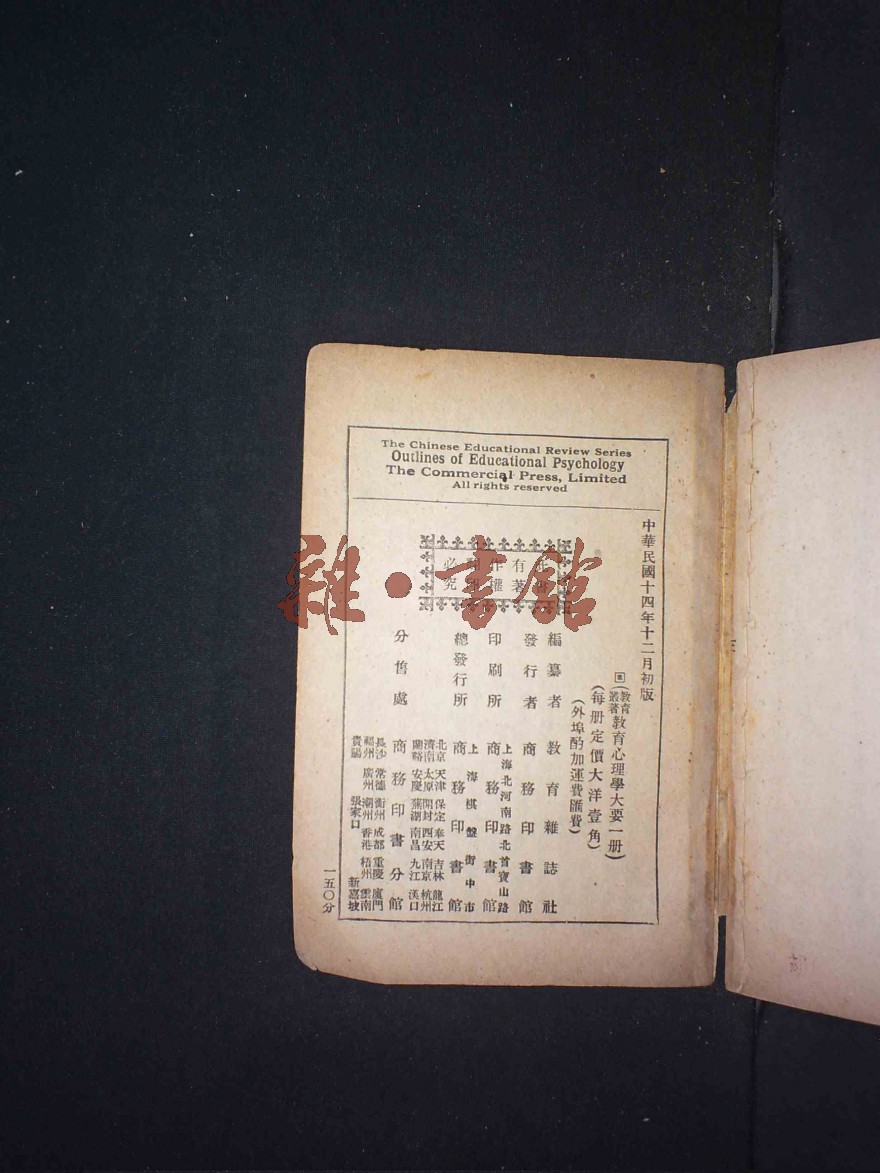 The Chinese Educational Review Series
Outlines of Educational Psychology
The Commercial Press, Limited
All rights reserved
中華民國十四年十二月初版
教育叢著
教育心理學大要一册
(每册定價大洋壹角)
(外埠酌加運費匯費)
有著
作權
必究
編纂者 教育雜誌社
發行者 商務印書館
印刷所 上海北河南路北首寶山路 商務印書館
總發行所 上海棋盤街中市 商務印書館
分售處 商務印書分館
北京 天津 保定 奉天 吉林 龍江
濟南 太原 開封 西安 南京 杭州
蘭谿 安慶 蕪湖 南昌 九江 漢口
長沙 常德 衡州 成都 重慶 廈門
福州 廣州 潮州 香港 梧州 雲南
貴陽 張家口 新嘉坡
一五〇分
雜·書館